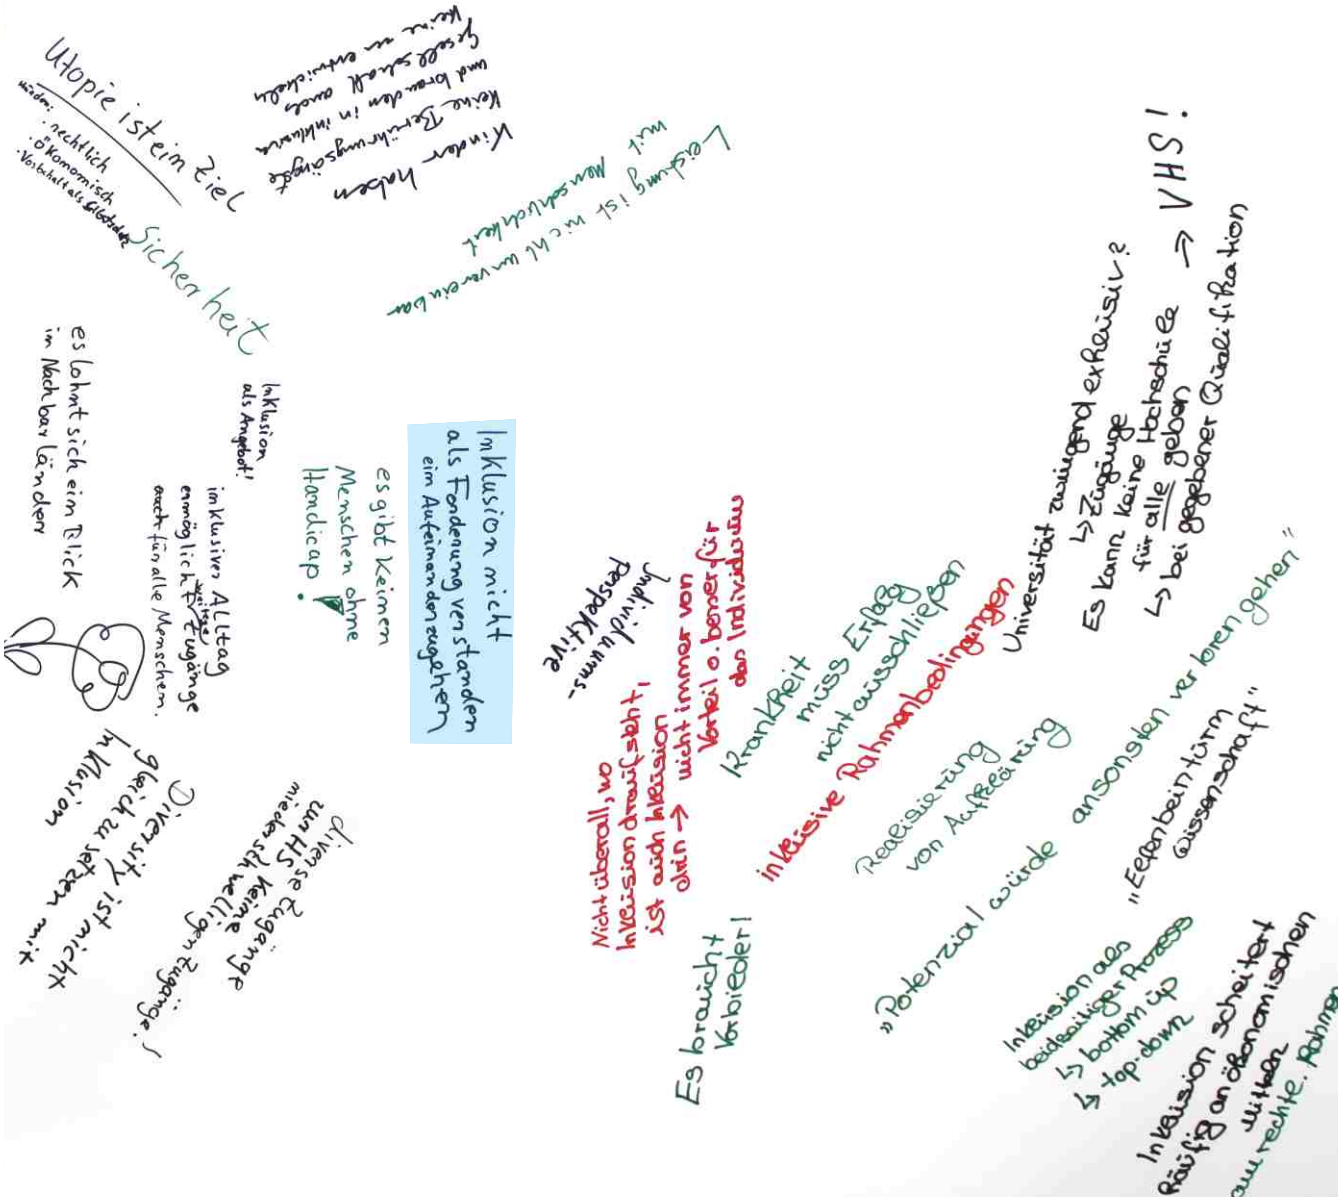 Utopie ist ein Ziel
Hürden:
· rechtlich
· ökonomisch
· Vorbehalt als Selbstschutz
Sicherheit
Kinder haben
keine Berührungsängste
und brauchen in inklusiver
Gesellschaft auch
keine zu entwickeln
Leistung ist nicht unvereinbar
mit Menschlichkeit
es lohnt sich ein Blick
im Nachbarländer
Inklusion
als Angebot!
inklusiver Alltag
ermöglicht weitere Zugänge
auch für alle Menschen.
es gibt keinen
Menschen ohne
Handicap!
Inklusion nicht
als Forderung verstanden
ein Aufeinanderzugehen
Diversity ist nicht
gleich zu setzen mit
Inklusion
diverse Zugänge
zur HS keine
niederschwelligen Zugänge!
Individuums-
Perspektive
Nicht überall, wo
Inklusion drauf steht,
ist auch Inklusion
drin → nicht immer von
Vorteil o. besser für
das Individuum
Krankheit
muss Erfolg
nicht ausschließen
inklusive Rahmenbedingungen
Realisierung
von Aufklärung
Universität zwingend exklusiv?
↳ Zugänge
Es kann keine Hochschule
für alle geben → VHS!
↳ bei gegebener Qualifikation
„Potenzial würde ansonsten verloren gehen"
„Elfenbeinturm
Wissenschaft"
Es braucht
Vorbilder!
Inklusion als
beidseitiger Prozess
↳ bottom up
↳ top-down
Inklusion scheitert
häufig an ökonomischen
Mitteln
rechtl. Rahmen